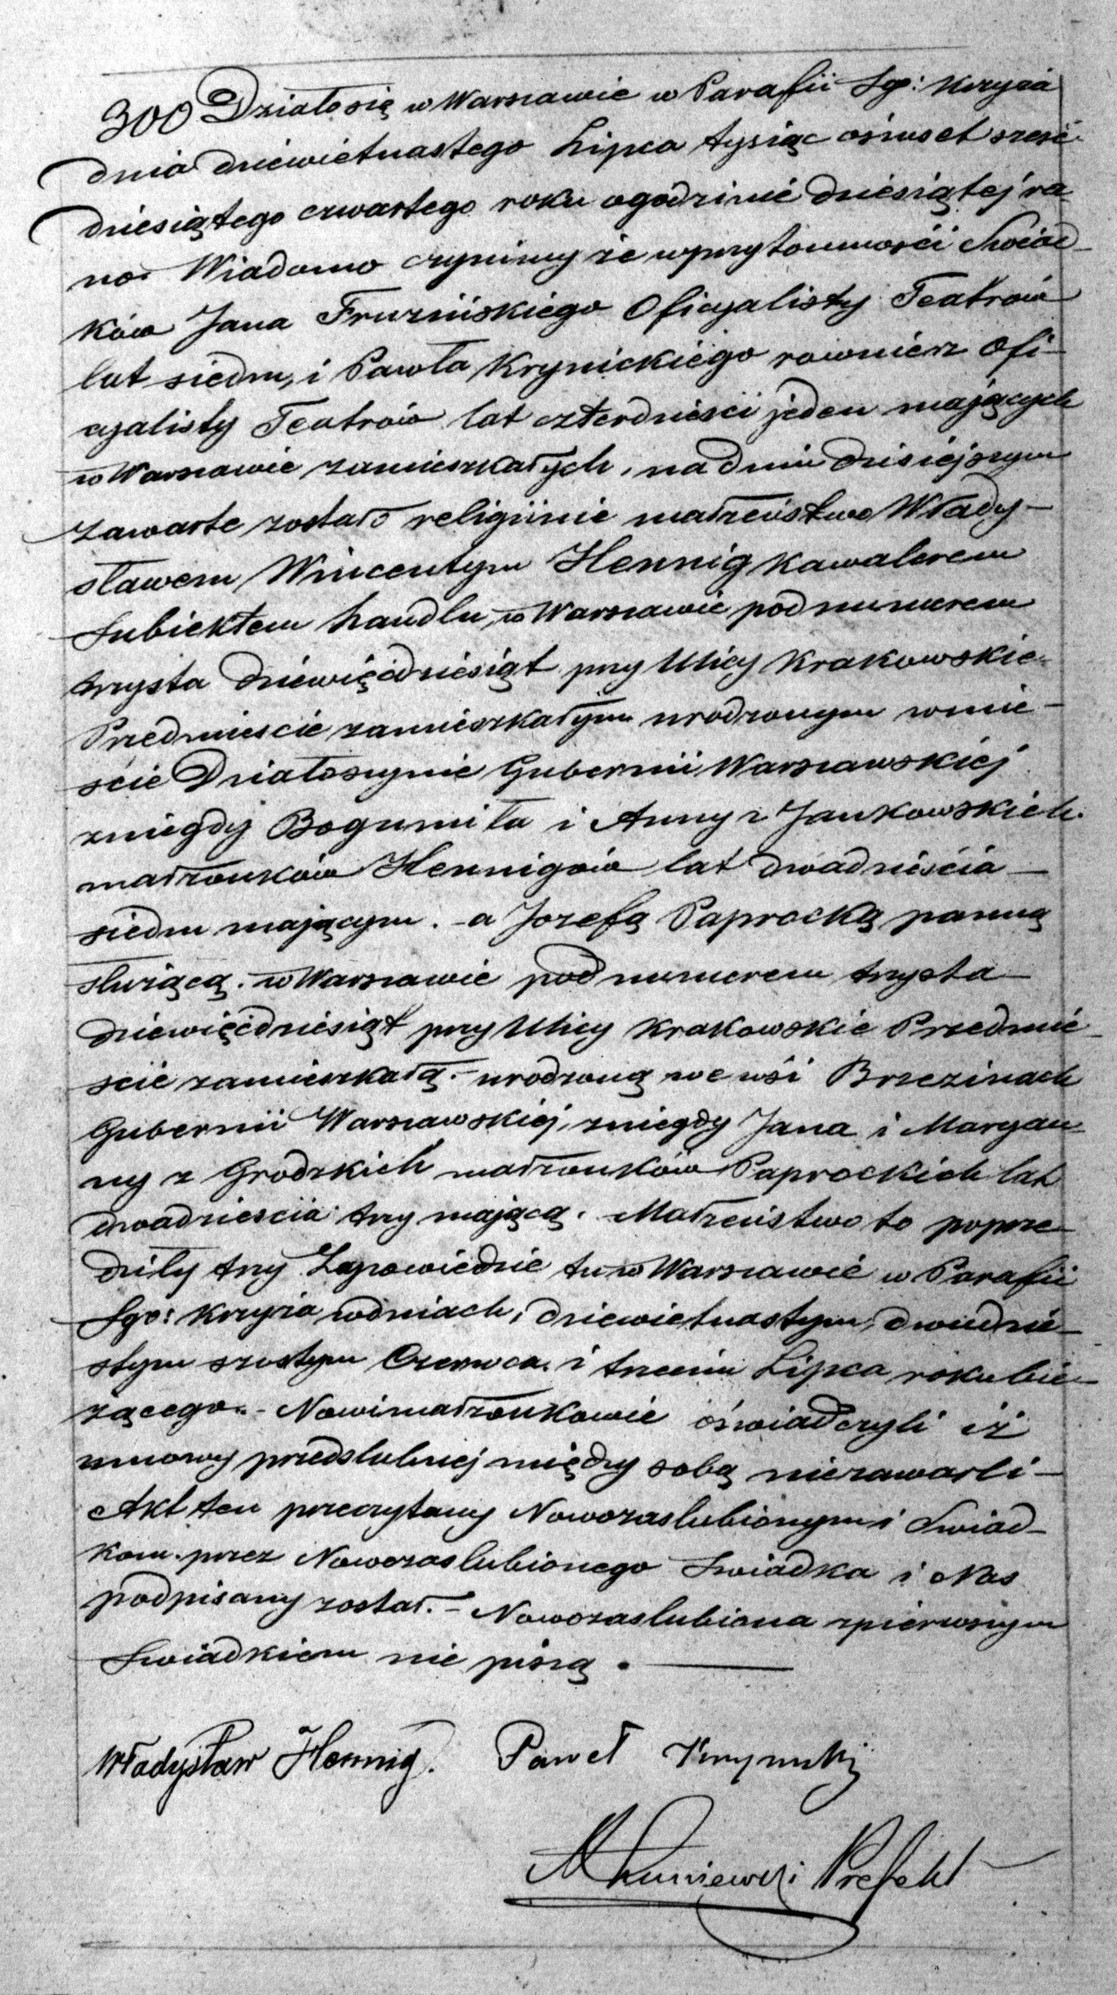 300 Działo się w Warszawie w Parafii Sgo: Krzyża
dnia dziewietnastego Lipca tysiąc ośmset sześć-
dziesiątego czwartego roku ogodzinie dziesiątej ra-
no. Wiadomo czynimy że wprzytomności Świad-
ków Jana Fruzińskiego Oficyalisty Teatrów
lat siedm, i Pawła Krynickiego rownież Ofi-
cyalisty Teatrów lat czterdzieści jeden mających
w Warszawie zamieszkałych, na dniu dzisiejszym
zawarte zostało religijnie małżeństwo Włady-
sławem Wincentym Hennig Kawalerem
Subiektem handlu, w Warszawie pod numerem
trzysta dziewięćdziesiąt przy Ulicy Krakowskie-
Przedmieście zamieszkałym urodzonym wmie-
ście Działoszynie Gubernii Warszawskiej
zniegdy Bogumiła i Anny z Jankowskich
małżonków Hennigów lat dwadzieścia
siedm mającym. - a Jozefą Paprocką panną
służącą. w Warszawie pod numerem trzysta
dziewięćdziesiąt przy Ulicy Krakowskie Przedmie-
ście zamieszkałą. - urodzoną we wsi Brzezinach
Gubernii Warszawskiej, zniegdy Jana i Maryan-
ny z Grodzkich małżonków Paprockich lat
dwadzieścia trzy mającą. Małżeństwo to poprze-
dziły trzy Zapowiedzie tu w Warszawie w Parafii
Sgo: Krzyża wdniach, dziewietnastym, dwudzie-
stym szostym Czerwca i trzecim Lipca roku bie-
żącego. - Nowi małżonkowie oświadczyli iż
umowy przedslubnej między sobą niezawarli -
Akt ten przeczytany Nowozaslubionym i Swiad-
kom. przez Nowozaslubionego Swiadka i Nas
podpisany został. - Nowozaslubiona zpierwszym
Swiadkiem nie piszą.
Władysław Hennig. Paweł Krynicki
Prefekt